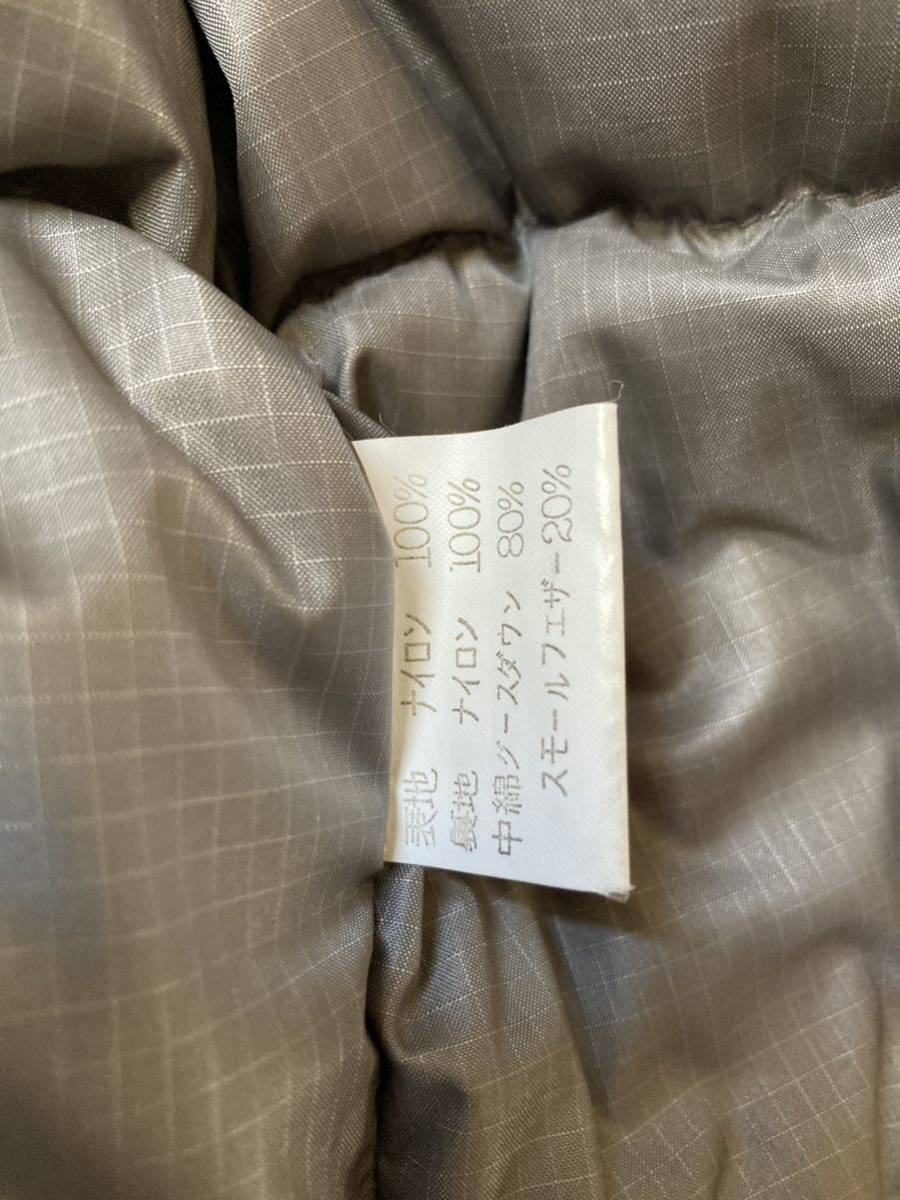 表地 ナイロン 100%
裏地 ナイロン 100%
中綿 グースダウン 80%
スモールフエザー 20%